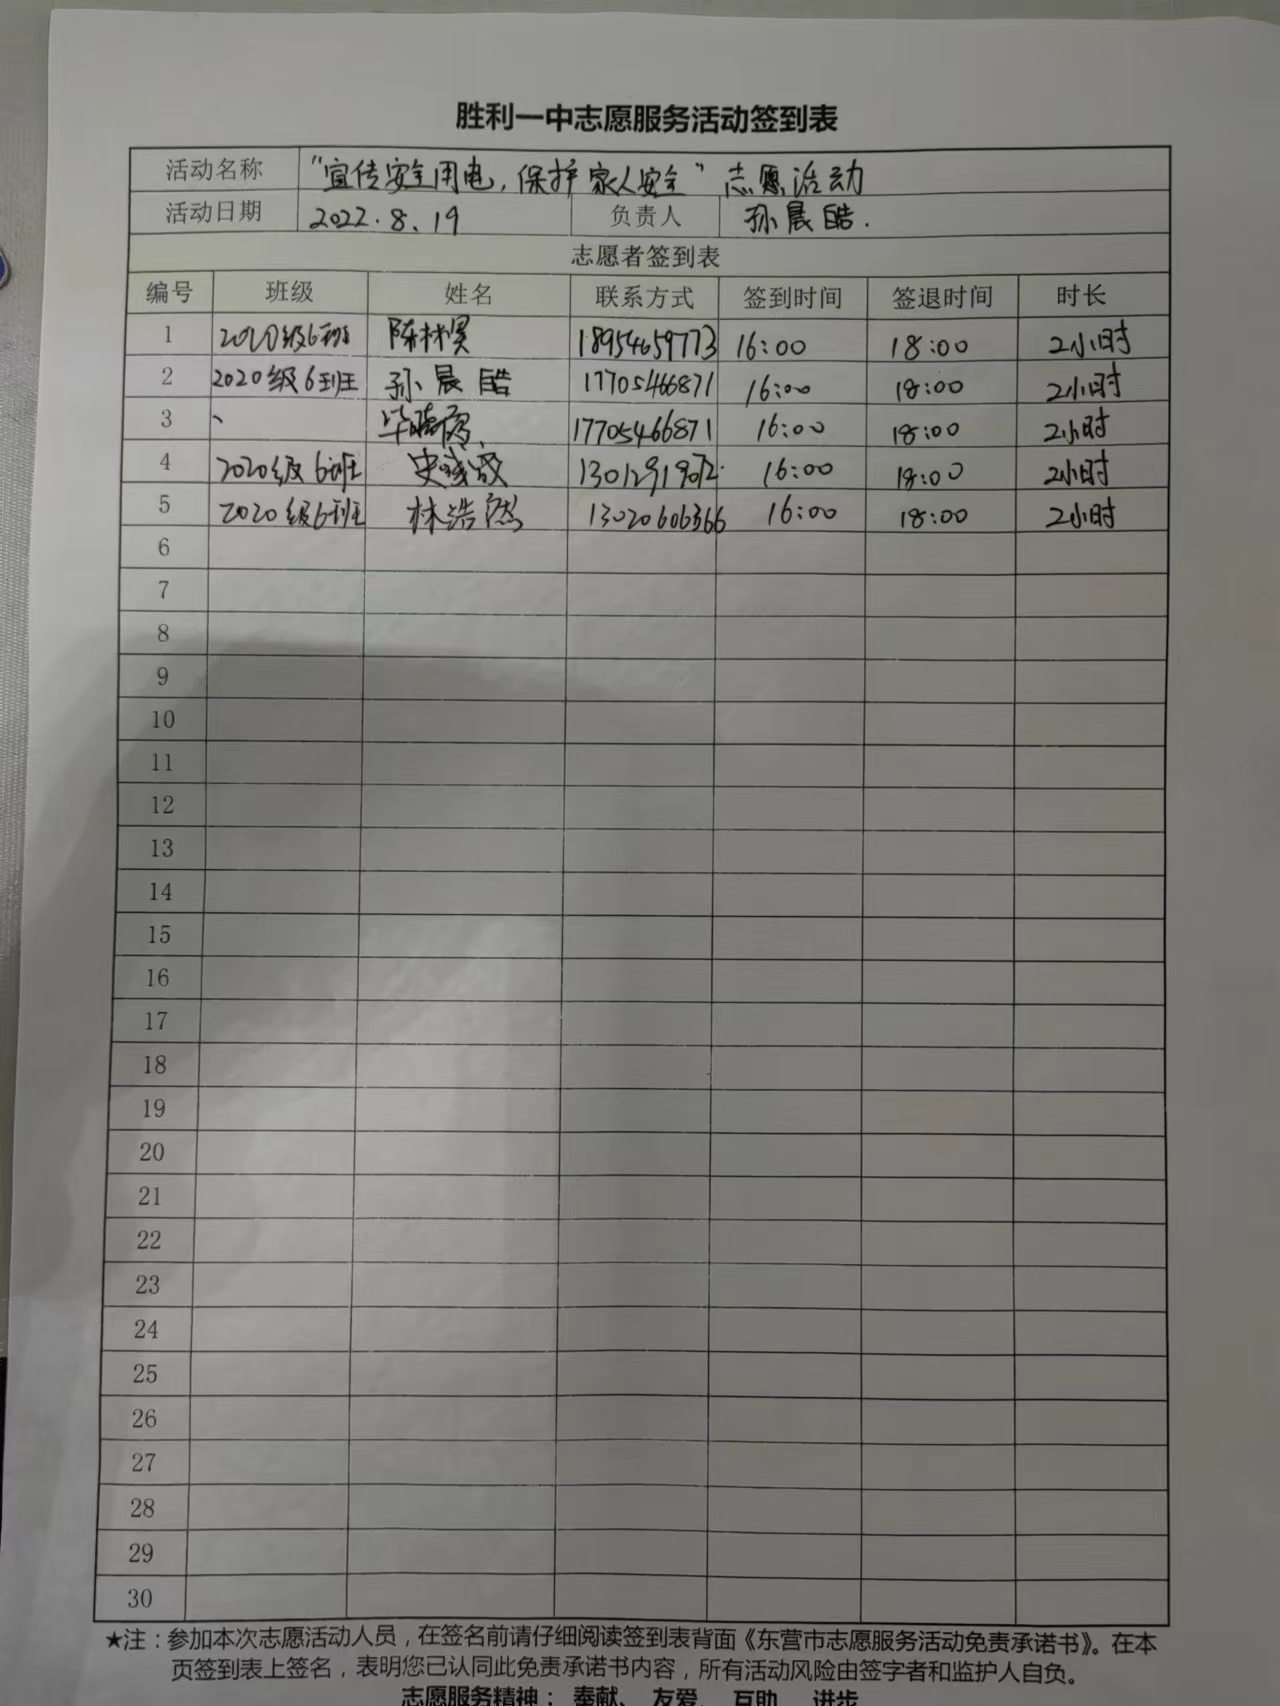 胜利一中志愿服务活动签到表
活动名称 "宣传安全用电，保护家人安全"志愿活动
活动日期 2022.8.19 负责人 孙晨皓.
志愿者签到表
编号 班级 姓名 联系方式 签到时间 签退时间 时长
1 2020级6班 陈林昊 18954659773 16:00 18:00 2小时
2 2020级6班 孙晨皓 17705466871 16:00 18:00 2小时
3 、 毕 17705466871 16:00 18:00 2小时
4 2020级6班 史 16:00 18:00 2小时
5 2020级6班 林浩然 13020606366 16:00 18:00 2小时
6
7
8
9
10
11
12
13
14
15
16
17
18
19
20
21
22
23
24
25
26
27
28
29
30
★注：参加本次志愿活动人员，在签名前请仔细阅读签到表背面《东营市志愿服务活动免责承诺书》。在本
页签到表上签名，表明您已认同此免责承诺书内容，所有活动风险由签字者和监护人自负。
志愿服务精神：奉献、友爱、互助、进步